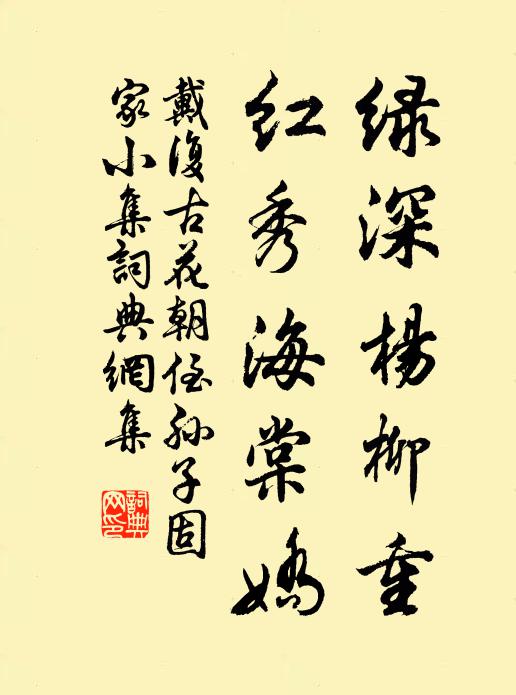 绿深楊柳重
红秀海棠嬌
戴復古花朝侄孙子固
家小集詞典網集
詞典网印